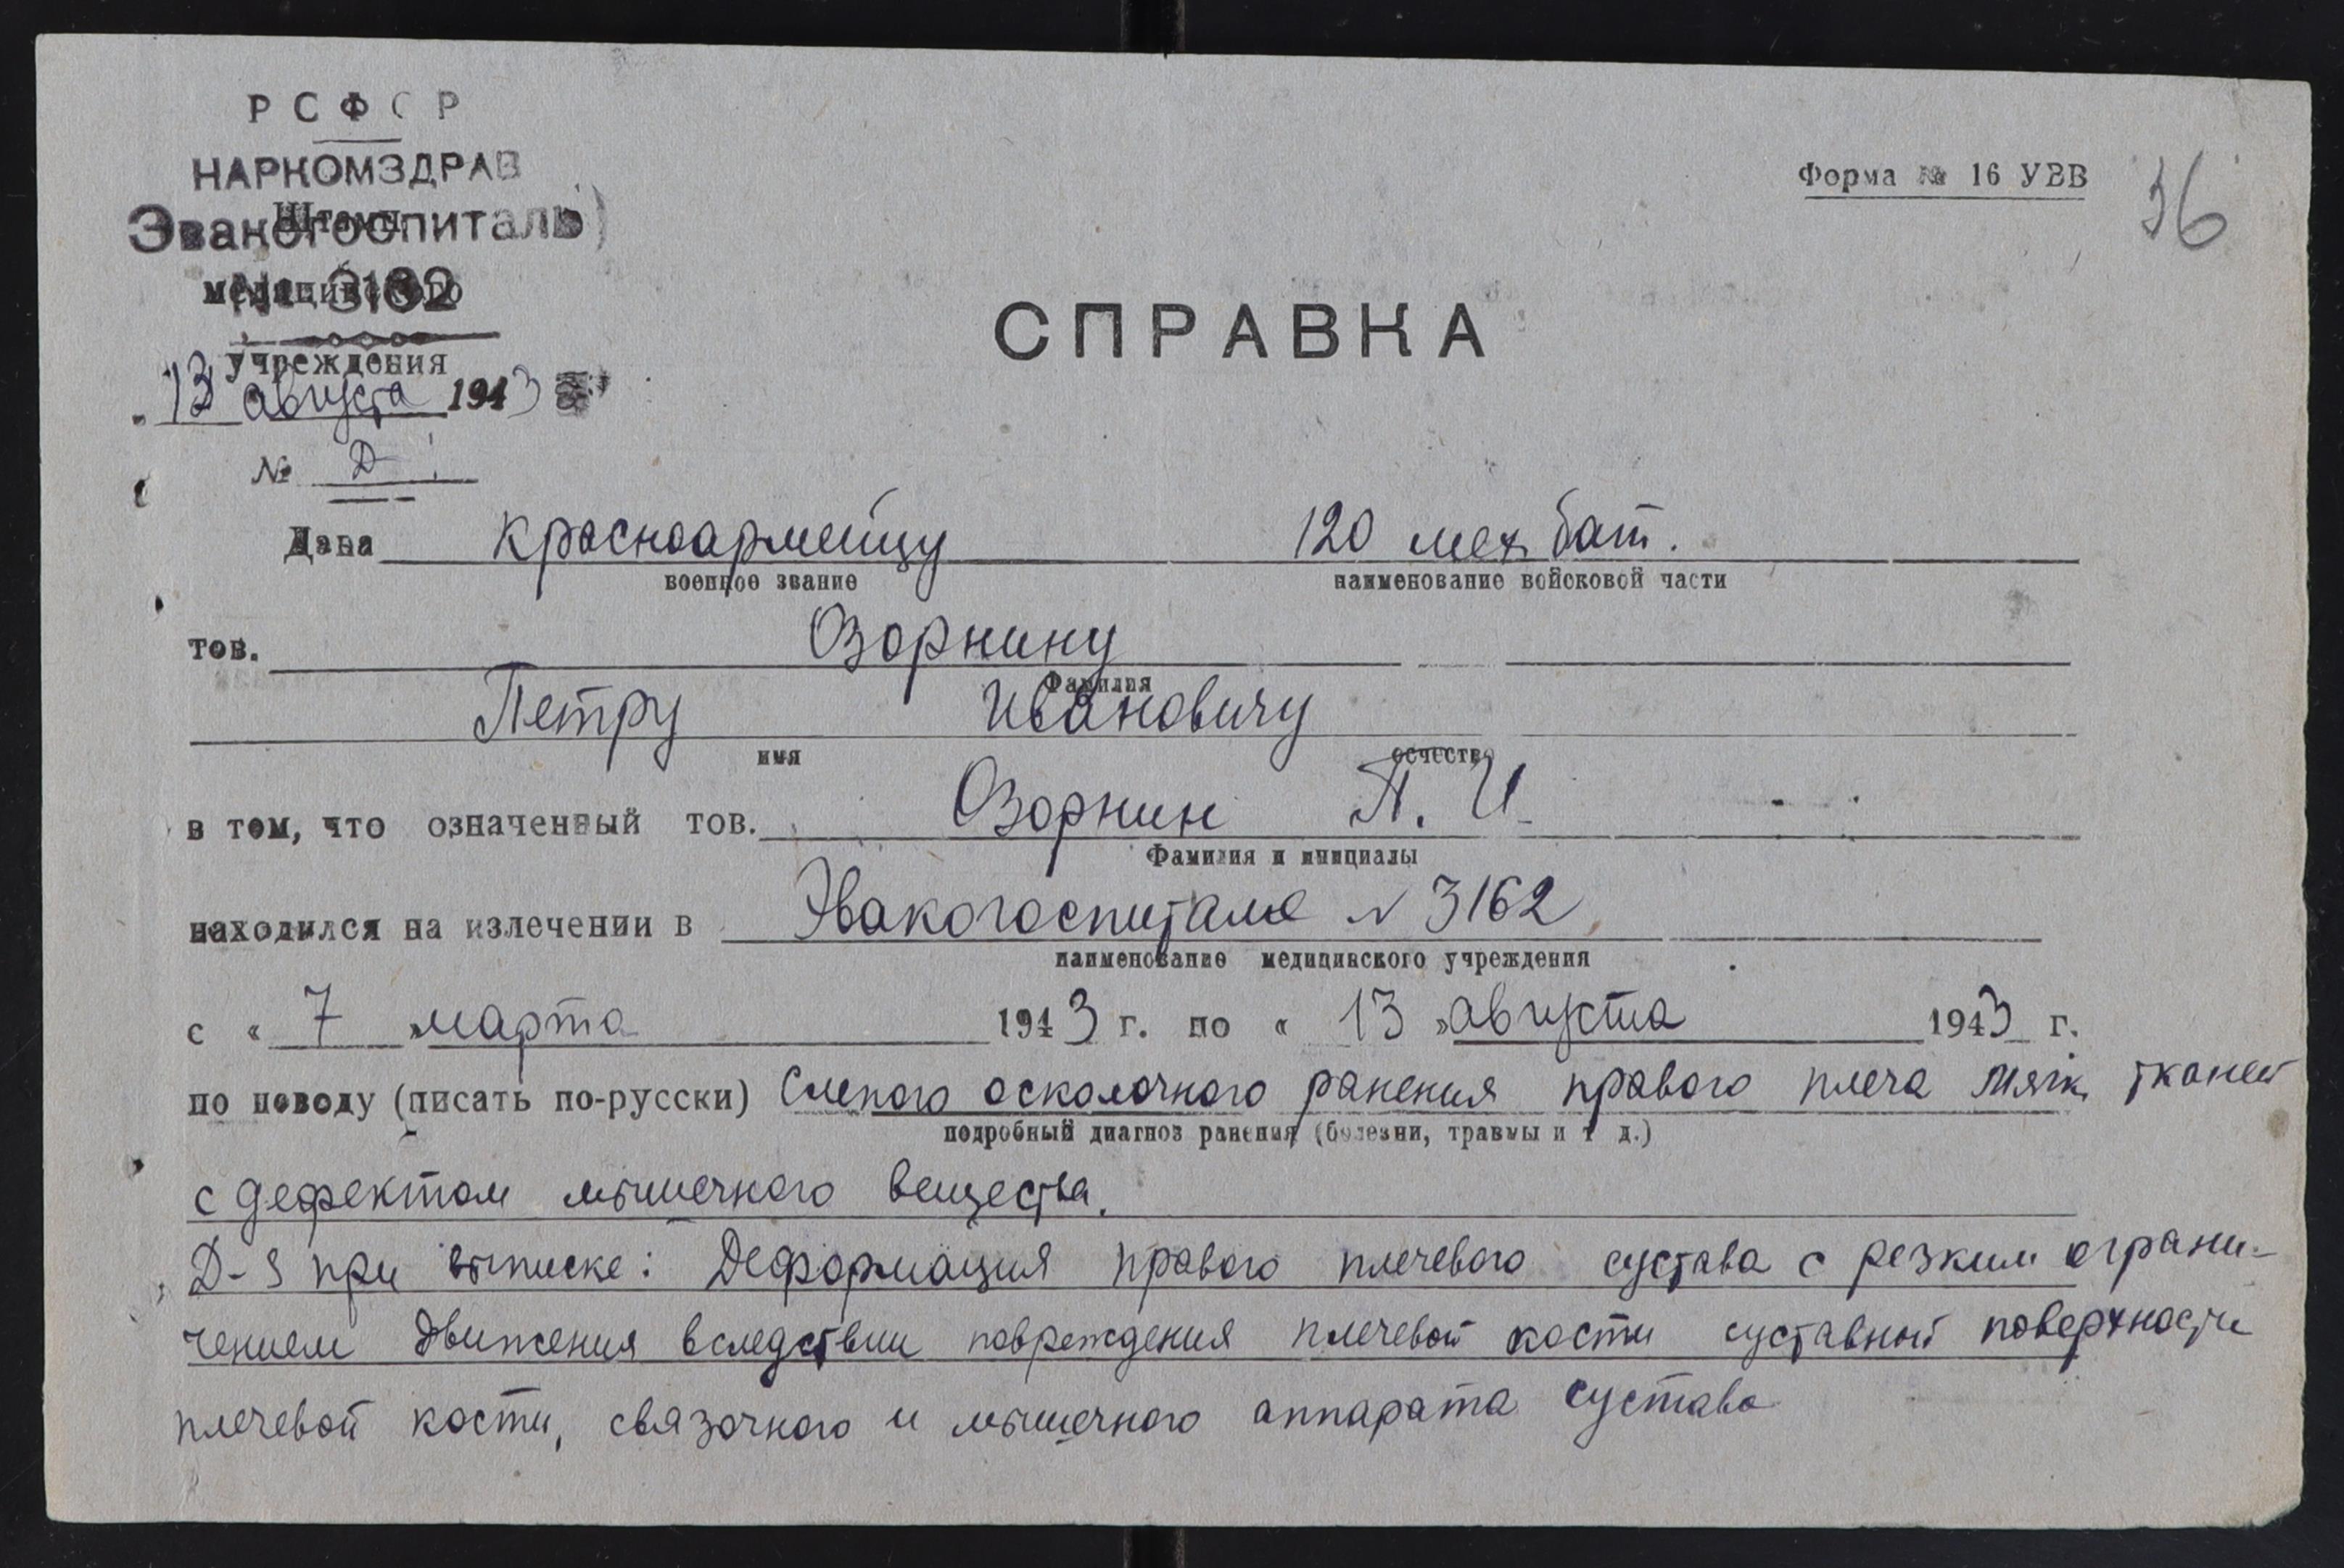 РСФСР
НАРКОМЗДРАВ
Штамп
Эвакогоспиталь
медицинского
№ 3162
учреждения
"13 августа 1943
№ Д
Форма № 16 УВВ
36
СПРАВКА
Дана красноармейцу 120 мех бат.
военное звание наименование войсковой части
тов. Озорнину
Фамилия
Петру Ивановичу
имя осчество
в том, что означенный тов. Озорнин П. И.
Фамилия и инициалы
находился на излечении в Эвакогоспитале N 3162
наименование медицинского учреждения
с « 7 » марта 1943 г. по « 13 » августа 1943 г.
по поводу (писать по-русски) Слепого осколочного ранения правого плеча мягк. тканей
подробный диагноз ранения (болезни, травмы и т д.)
с дефектом мышечного вещества.
Д-S при выписке: Деформация правого плечевого сустава с резким ограни-
чением движения вследствии повреждения плечевой кости суставной поверхности
плечевой кости, связочного и мышечного аппарата сустава